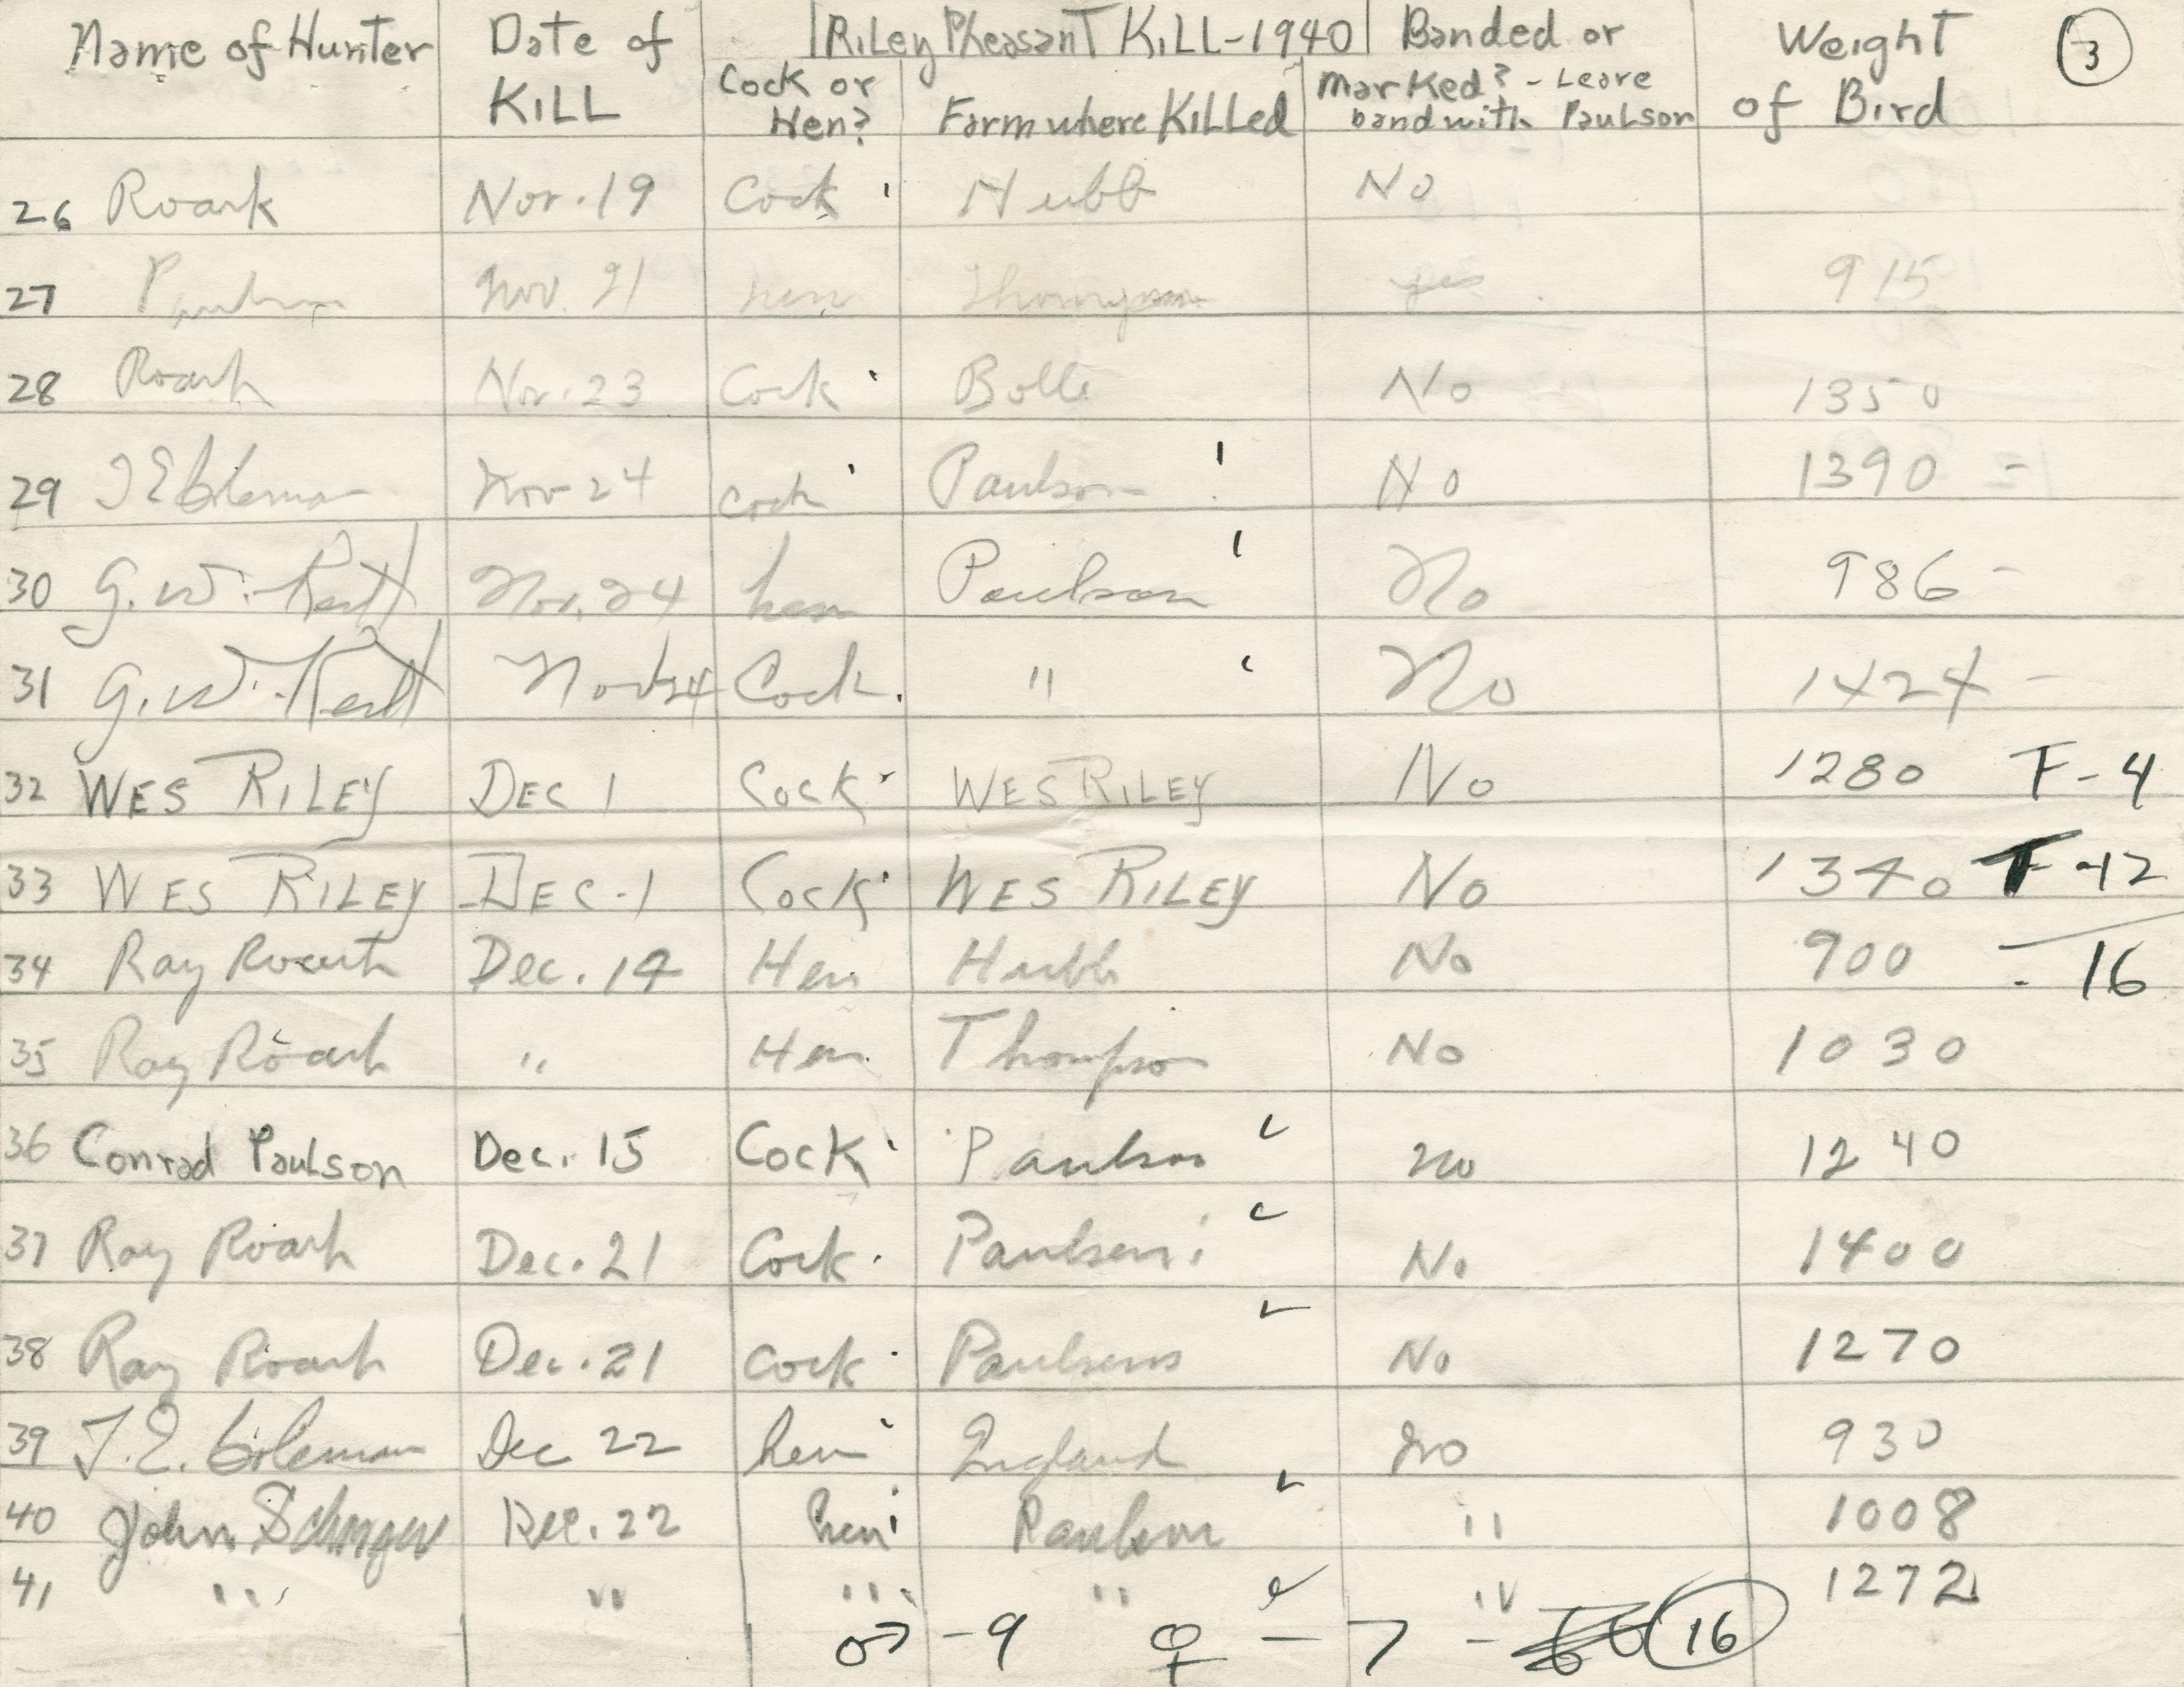 Riley Pheasant Kill-1940
3
Name of Hunter Date of Kill Cock or Hen? Farm where Killed Banded or Marked? - Leave band with Paulson Weight of Bird
26 Roark Nov. 19 Cock Hubb No
27 Paulson Nov. 21 hen Thompson yes 915
28 Roark Nov. 23 Cock Bolle No 1350
29 T E Coleman Nov 24 cock Paulson No 1390 -
30 G. W. Nov. 24 hen Paulson No 986 -
31 G. W. Nov 24 Cock " No 1424 -
32 WES RILEY DEC 1 Cock WES RILEY No 1280 F-4
33 WES RILEY DEC-1 Cock WES RILEY No 1340 F-12
34 Ray Roark Dec. 14 Hen Hubb No 900 - 16
35 Ray Roark " Hen Thompson No 1030
36 Conrad Paulson Dec. 15 Cock Paulson no 1240
37 Ray Roark Dec. 21 Cock Paulsen No 1400
38 Ray Roark Dec. 21 cock Paulsens No 1270
39 T. E. Coleman Dec 22 hen England no 930
40 John Dec. 22 hen Paulson " 1008
41 " " " " " 1272
♂ - 9 ♀ - 7 - 16